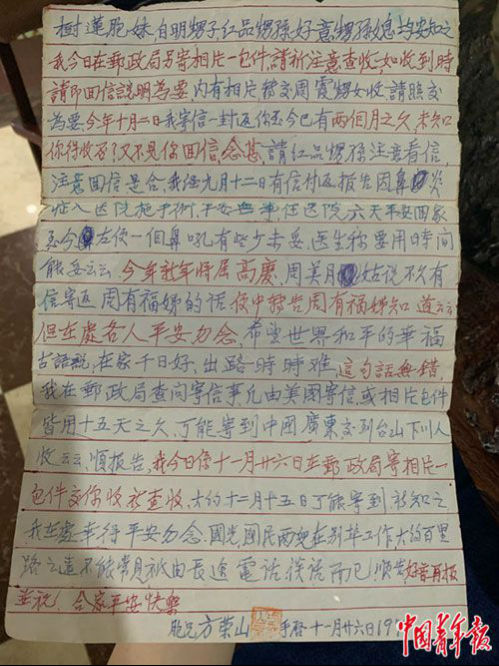 樹蓮胞妹自明甥子紅品甥孫好意甥孫媳均安知之
我今日在郵政局另寄相片一包件請祈注意查收如收到時
請即回信説明為要內有相片轉交周賣甥女收請照交
為要今年十月二日我寄信一封返你至今已有兩個月之久未知
你得收否了又不見你回信念甚請紅品甥孫注意看信
注意回信是合我往九月十二日有信付返報告因鼻炎
症入医院施手術平安無事住医院六天平安回家
至今左便一個鼻吼有些少未妥医生称要用日時間
能妥云云今年新年將届高慶周美月姑説不久有
信寄返周有福娣的話便中報告周有福娣知道云云
但在處各人平安勿念希望世界和平的幸福
古語説在家千日好出路時時难這句話無錯
我在郵政局查问寄信事凡由美國寄信或相片包件
皆用十五天之久可能寄到中國廣東交到台山下川人
收云云順报告我今日偣十一月廿六日在郵政局寄相片一
包件交你收祈查收大約十二月十五日可能寄到祈知之
我在處幸得平安勿念國光國民兩兒在别埠工作大約百里
路之遠不能常見祗由長途電話談話而已順告好音再报
並祝合家平安快樂
胞兄方荣山手啓十一月廿六日19
中國青年报